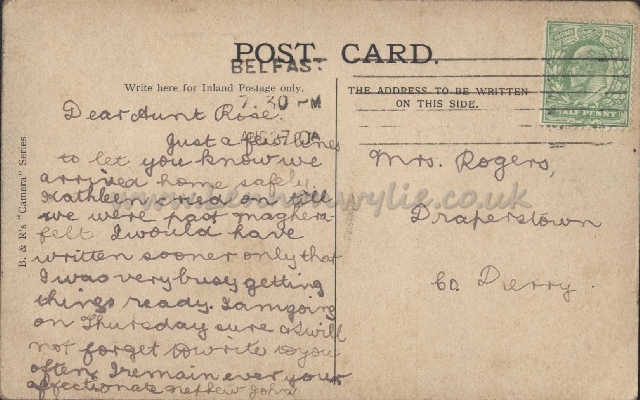 POST CARD.
BELFAST
7.30 PM
Write here for Inland Postage only.
THE ADDRESS TO BE WRITTEN
ON THIS SIDE.
HALF PENNY
B. & R's "Camera" Series
Dear Aunt Rose.
Just a few lines
to let you know we
arrived home safely
Kathleen cried on till
we were past maghera-
felt I would have
written sooner only that
I was very busy getting
things ready. I am going
on Thursday sure & I will
not forget to write to you
often, I remain ever your
affectionate nephew John
Mrs. Rogers,
Draperstown
Co. Derry.